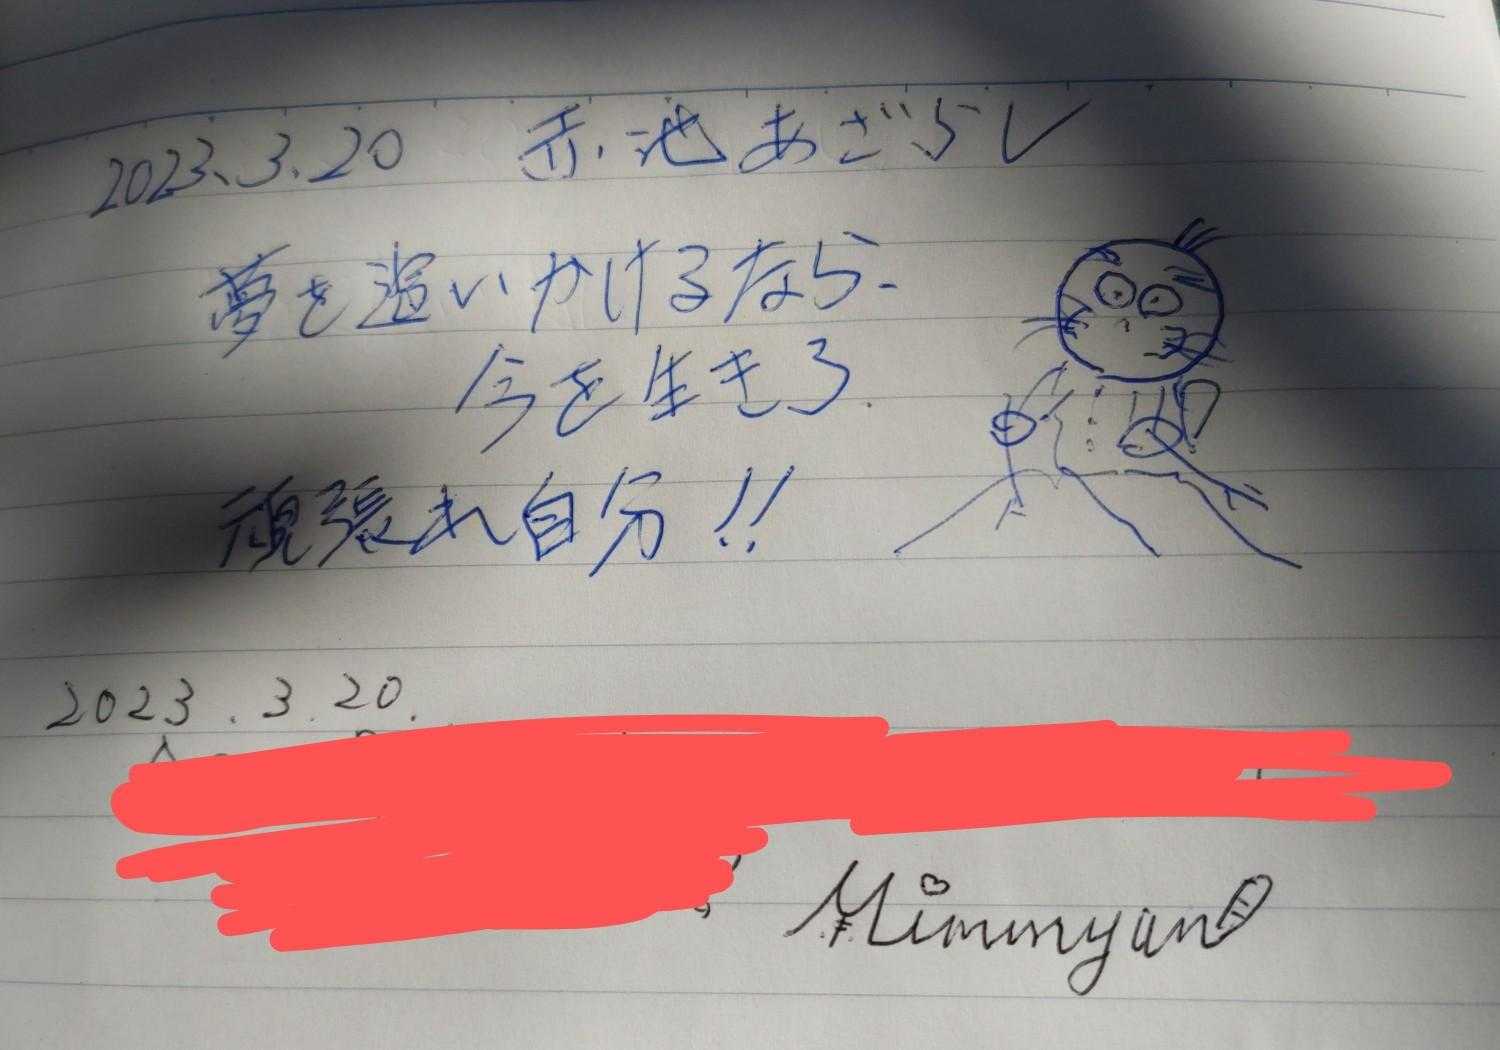 2023.3.20 赤池あざらし
夢を追いかけるなら、
今を生きろ.
頑張れ自分!!
2023.3.20.
Mimmyan